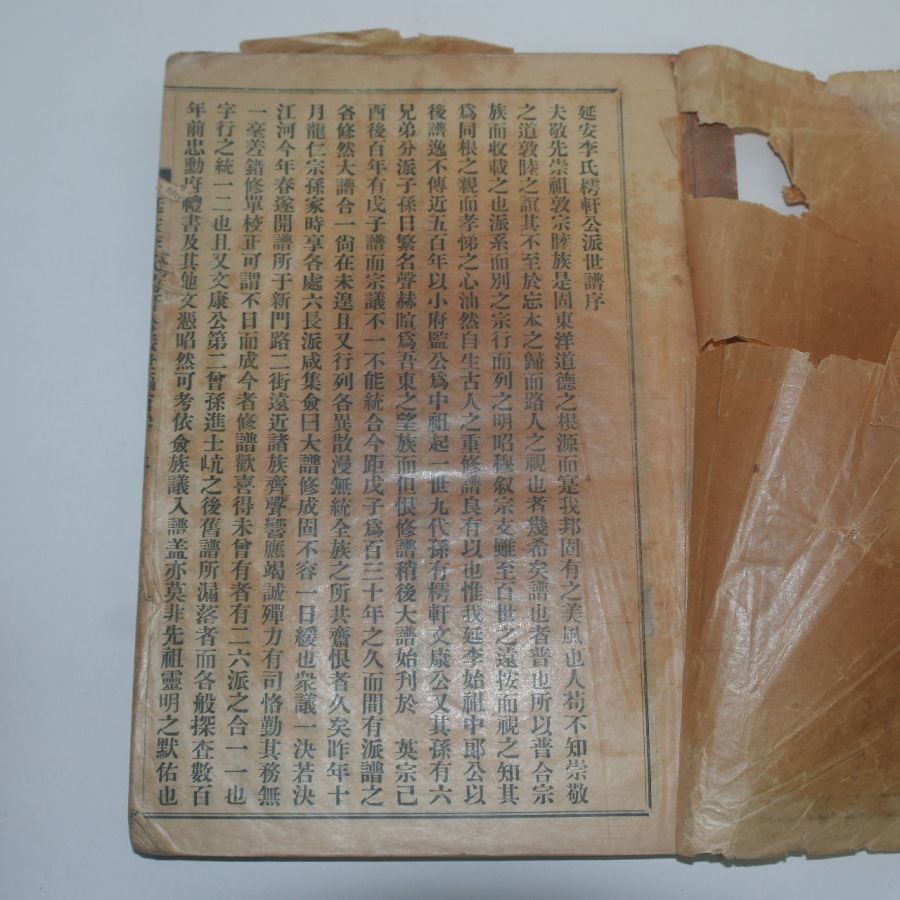 延安李氏樗軒公派世譜序
夫敬先崇祖敦宗睦族是固東洋道德之根源而寔我邦固有之美風也人苟不知崇敬
之道敦睦之誼其不至於忘本之歸而路人之視也者幾希矣譜也者普也所以普合宗
族而收載之也派系而別之宗行而列之明昭穆叙宗支雖至百世之遠按而視之知其
爲同根之親而孝悌之心油然自生古人之重修譜良有以也惟我延李始祖中郞公以
後譜逸不傳近五百年以小府監公爲中祖起一世九代孫有樗軒文康公又其孫有六
兄弟分派子孫日繁名聲赫喧爲吾東之望族而但恨修譜稍後大譜始刊於 英宗己
酉後百年有戊子譜而宗議不一不能統合今距戊子爲百三十年之久而間有派譜之
各修然大譜合一尙在未遑且又行列各異散漫無統全族之所共齎恨者久矣昨年十
月龍仁宗孫家時享各處六長派咸集僉曰大譜修成固不容一日緩也衆議一決若決
江河今年春遂開譜所于新門路二街遠近諸族齊聲響應竭誠殫力有司恪勤其務無
一毫差錯修單校正可謂不日而成今者修譜歡喜得未曾有者有二六派之合一一也
字行之統一二也且又文康公第二曾孫進士㞧之後舊譜所漏落者而各般探査數百
年前忠勳府禮書及其他文憑昭然可考依僉族議入譜盖亦莫非先祖靈明之默佑也